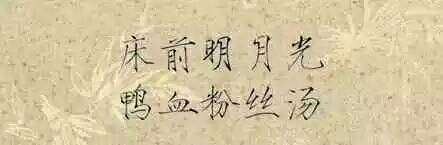 床前明月光
鸭血粉丝汤